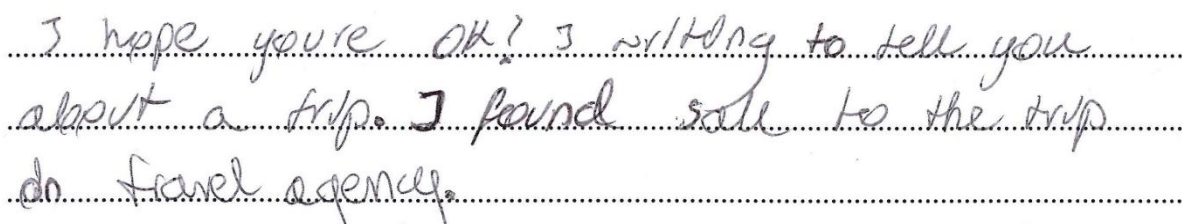 I hope youre OK? I writting to tell you
about a trip. I found sale to the trip
in travel agency.